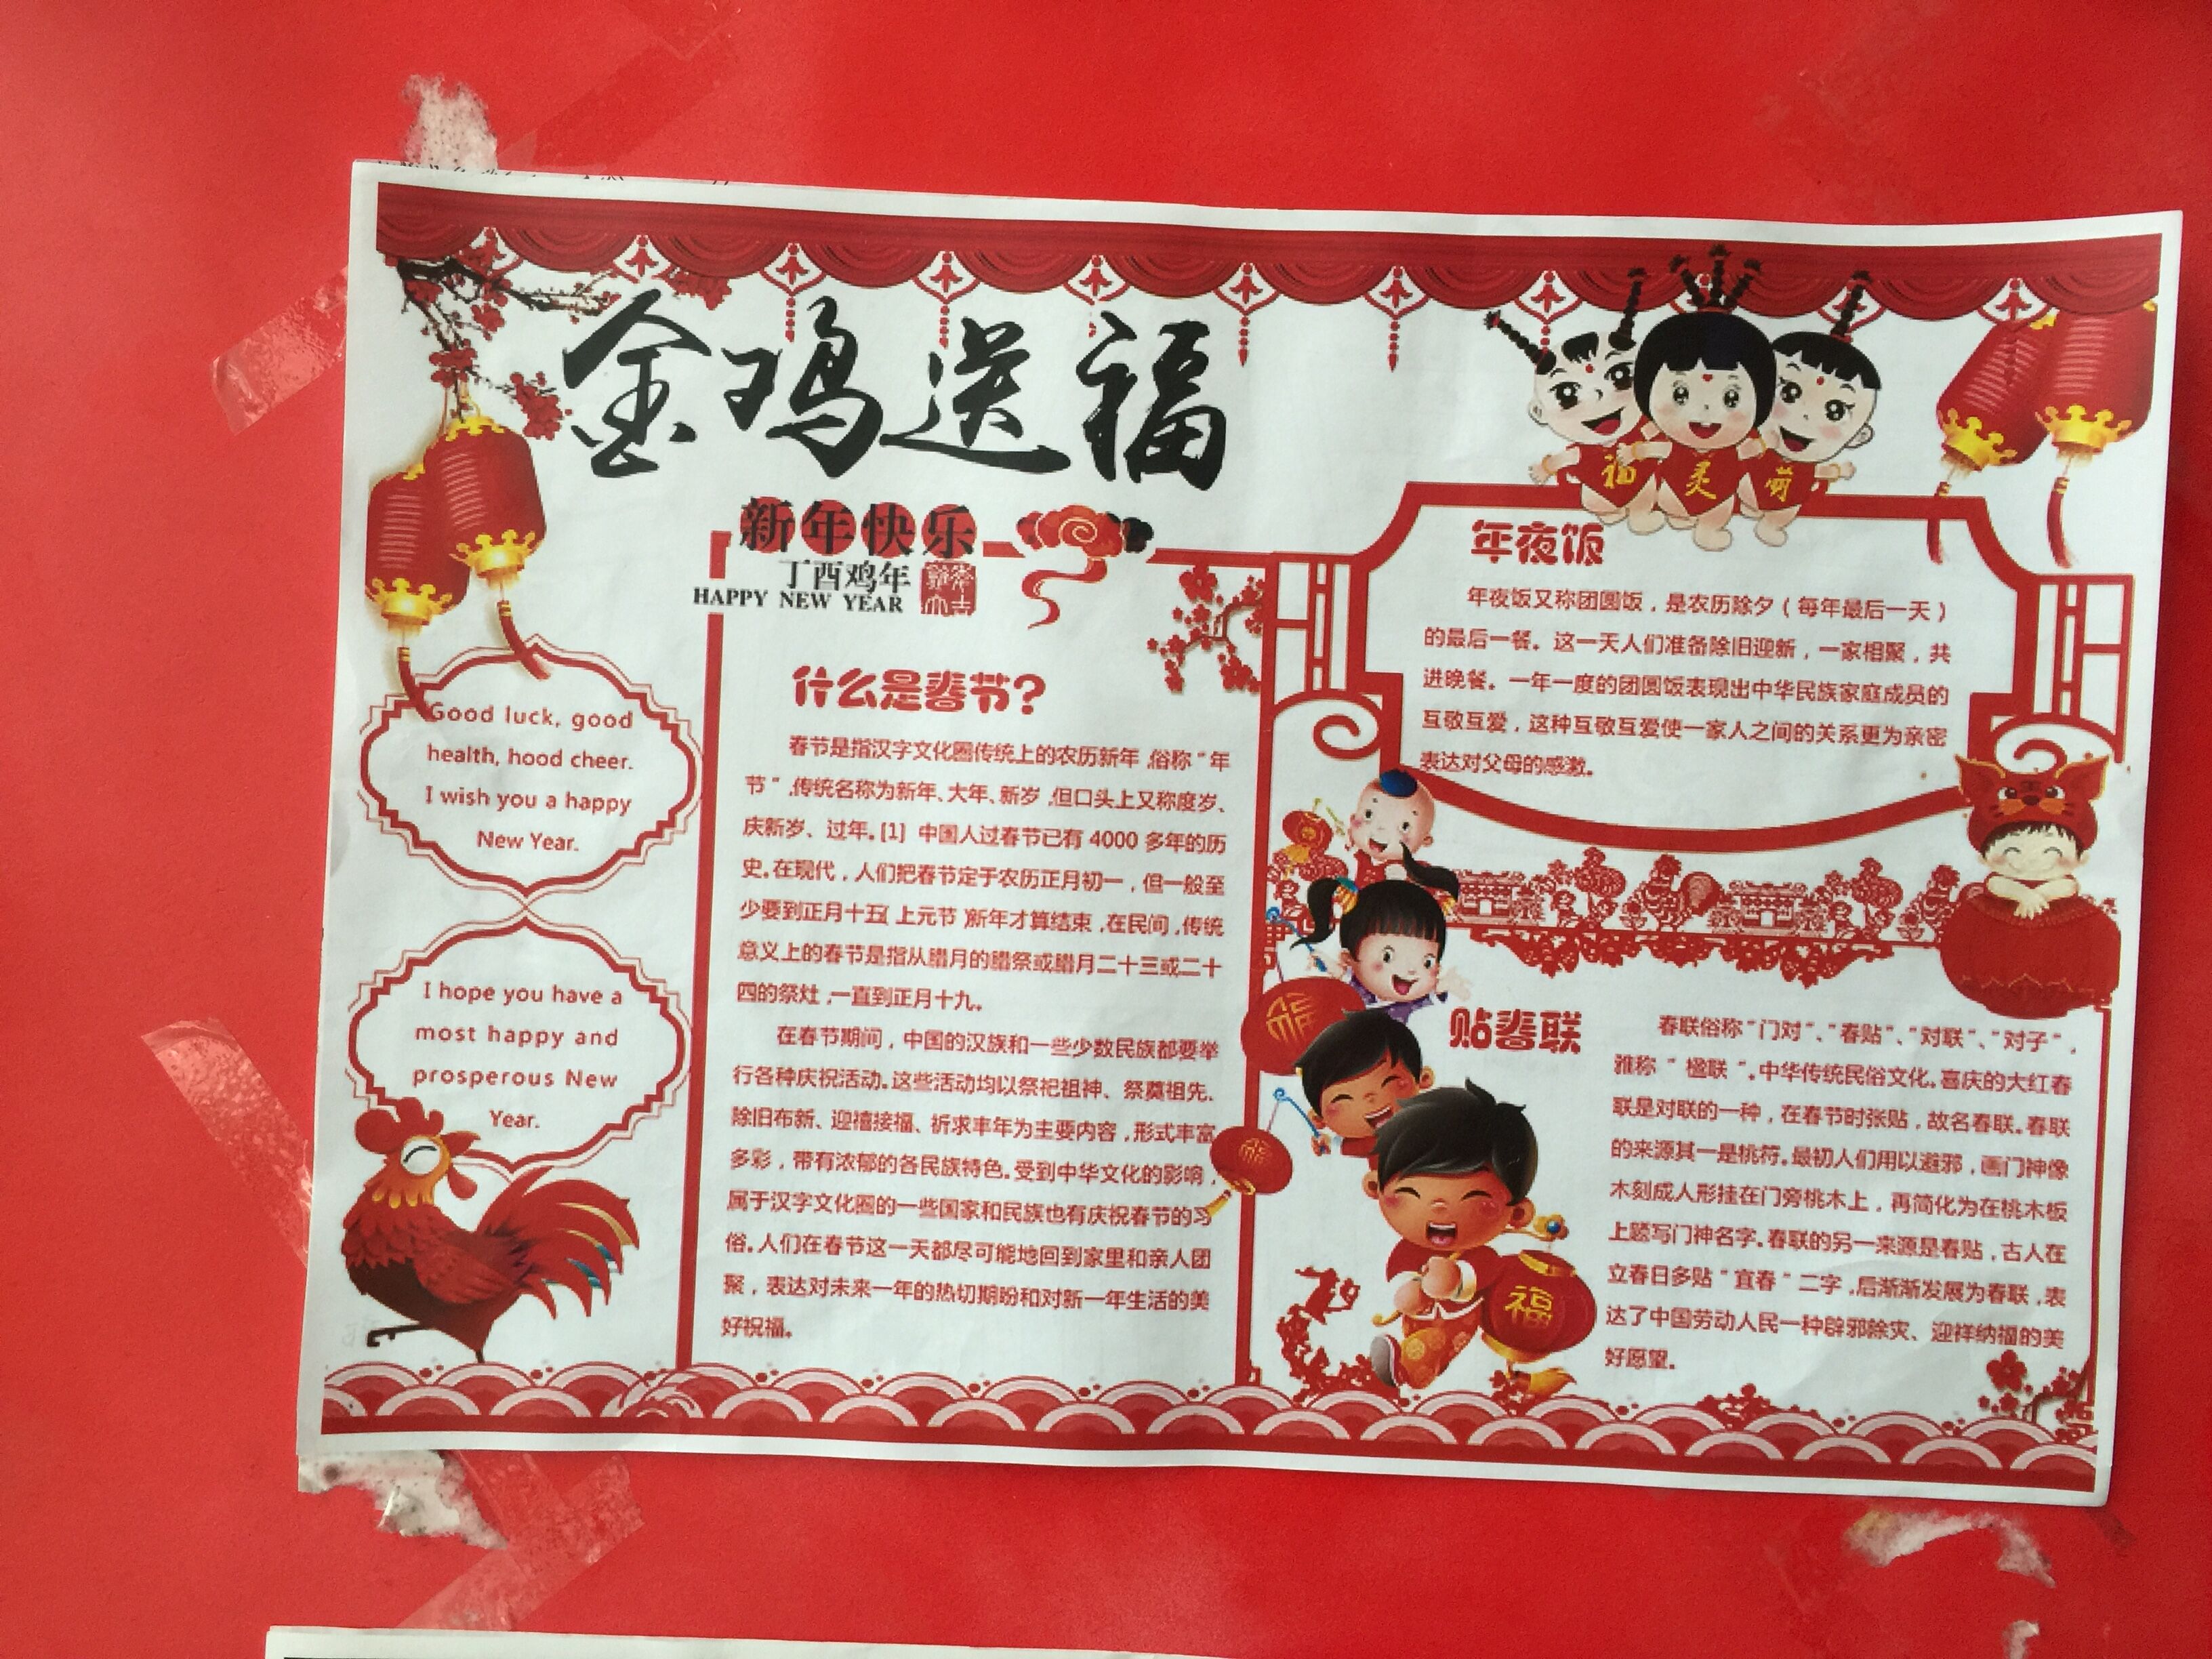 金鸡送福
新年快乐
丁酉鸡年
HAPPY NEW YEAR
Good luck, good
health, hood cheer.
I wish you a happy
New Year.
I hope you have a
most happy and
prosperous New
Year.
什么是春节?
春节是指汉字文化圈传统上的农历新年,俗称“年
节”,传统名称为新年、大年、新岁,但口头上又称度岁、
庆新岁、过年。[1] 中国人过春节已有 4000 多年的历
史。在现代，人们把春节定于农历正月初一，但一般至
少要到正月十五(上元节)新年才算结束，在民间，传统
意义上的春节是指从腊月的腊祭或腊月二十三或二十
四的祭灶,一直到正月十九。
在春节期间，中国的汉族和一些少数民族都要举
行各种庆祝活动。这些活动均以祭祀祖神、祭奠祖先、
除旧布新、迎禧接福、祈求丰年为主要内容，形式丰富
多彩，带有浓郁的各民族特色。受到中华文化的影响，
属于汉字文化圈的一些国家和民族也有庆祝春节的习
俗。人们在春节这一天都尽可能地回到家里和亲人团
聚，表达对未来一年的热切期盼和对新一年生活的美
好祝福。
灵
萌
年夜饭
年夜饭又称团圆饭，是农历除夕（每年最后一天）
的最后一餐。这一天人们准备除旧迎新，一家相聚，共
进晚餐。一年一度的团圆饭表现出中华民族家庭成员的
互敬互爱，这种互敬互爱使一家人之间的关系更为亲密
表达对父母的感激。
贴春联
春联俗称“门对”、“春贴”、“对联”、“对子”，
雅称“楹联”。中华传统民俗文化。喜庆的大红春
联是对联的一种，在春节时张贴，故名春联。春联
的来源其一是桃符。最初人们用以避邪，画门神像
木刻成人形挂在门旁桃木上，再简化为在桃木板
上题写门神名字。春联的另一来源是春贴，古人在
立春日多贴“宜春”二字,后渐渐发展为春联,表
达了中国劳动人民一种辟邪除灾、迎祥纳福的美
好愿望。
福
福
福